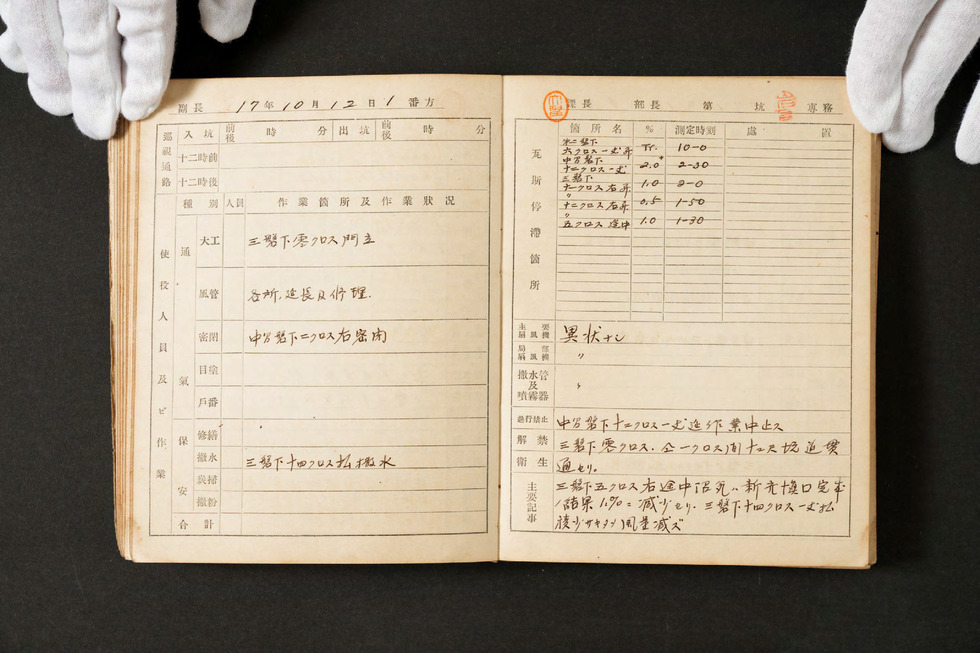 副長 17年10月12日1番方
巡視通路 入坑 前後 時 分 出坑 前後 時 分
十二時前
十二時後
使役人員及ビ作業
種別 人員 作業箇所及作業狀況
通氣
大工 三盤下零クロス門立
風管 各所,延長及修理.
密閉 中níž盤下二クロス右密閉
目塗
戶番
保安
修繕
撒水 三盤下十四クロス払撒水
炭掃
撒粉
合計
課長 部長 第 坑 専務
瓦斯停滯箇所
箇所名 % 測定時刻 處置
六クロス一丈昇 Tr. 10-0
十二クロス一丈 2.0 2-30
三盤下
十一クロス右昇 1.0 2-0
〃
十二クロス右昇 0.5 1-50
〃
五クロス途中 1.0 1-30
主要扇風機 異状ナシ
局部扇風機 〃
撒水管及噴霧器 〃
進行禁止 盤下十二クロス一丈延作業中止ス
解禁 三盤下零クロス.
衛生 通セリ.
主要記事 三盤下五クロス右途中
結果1.0%ニ減少セリ. 三盤下十四クロス一丈払
風量減ズ